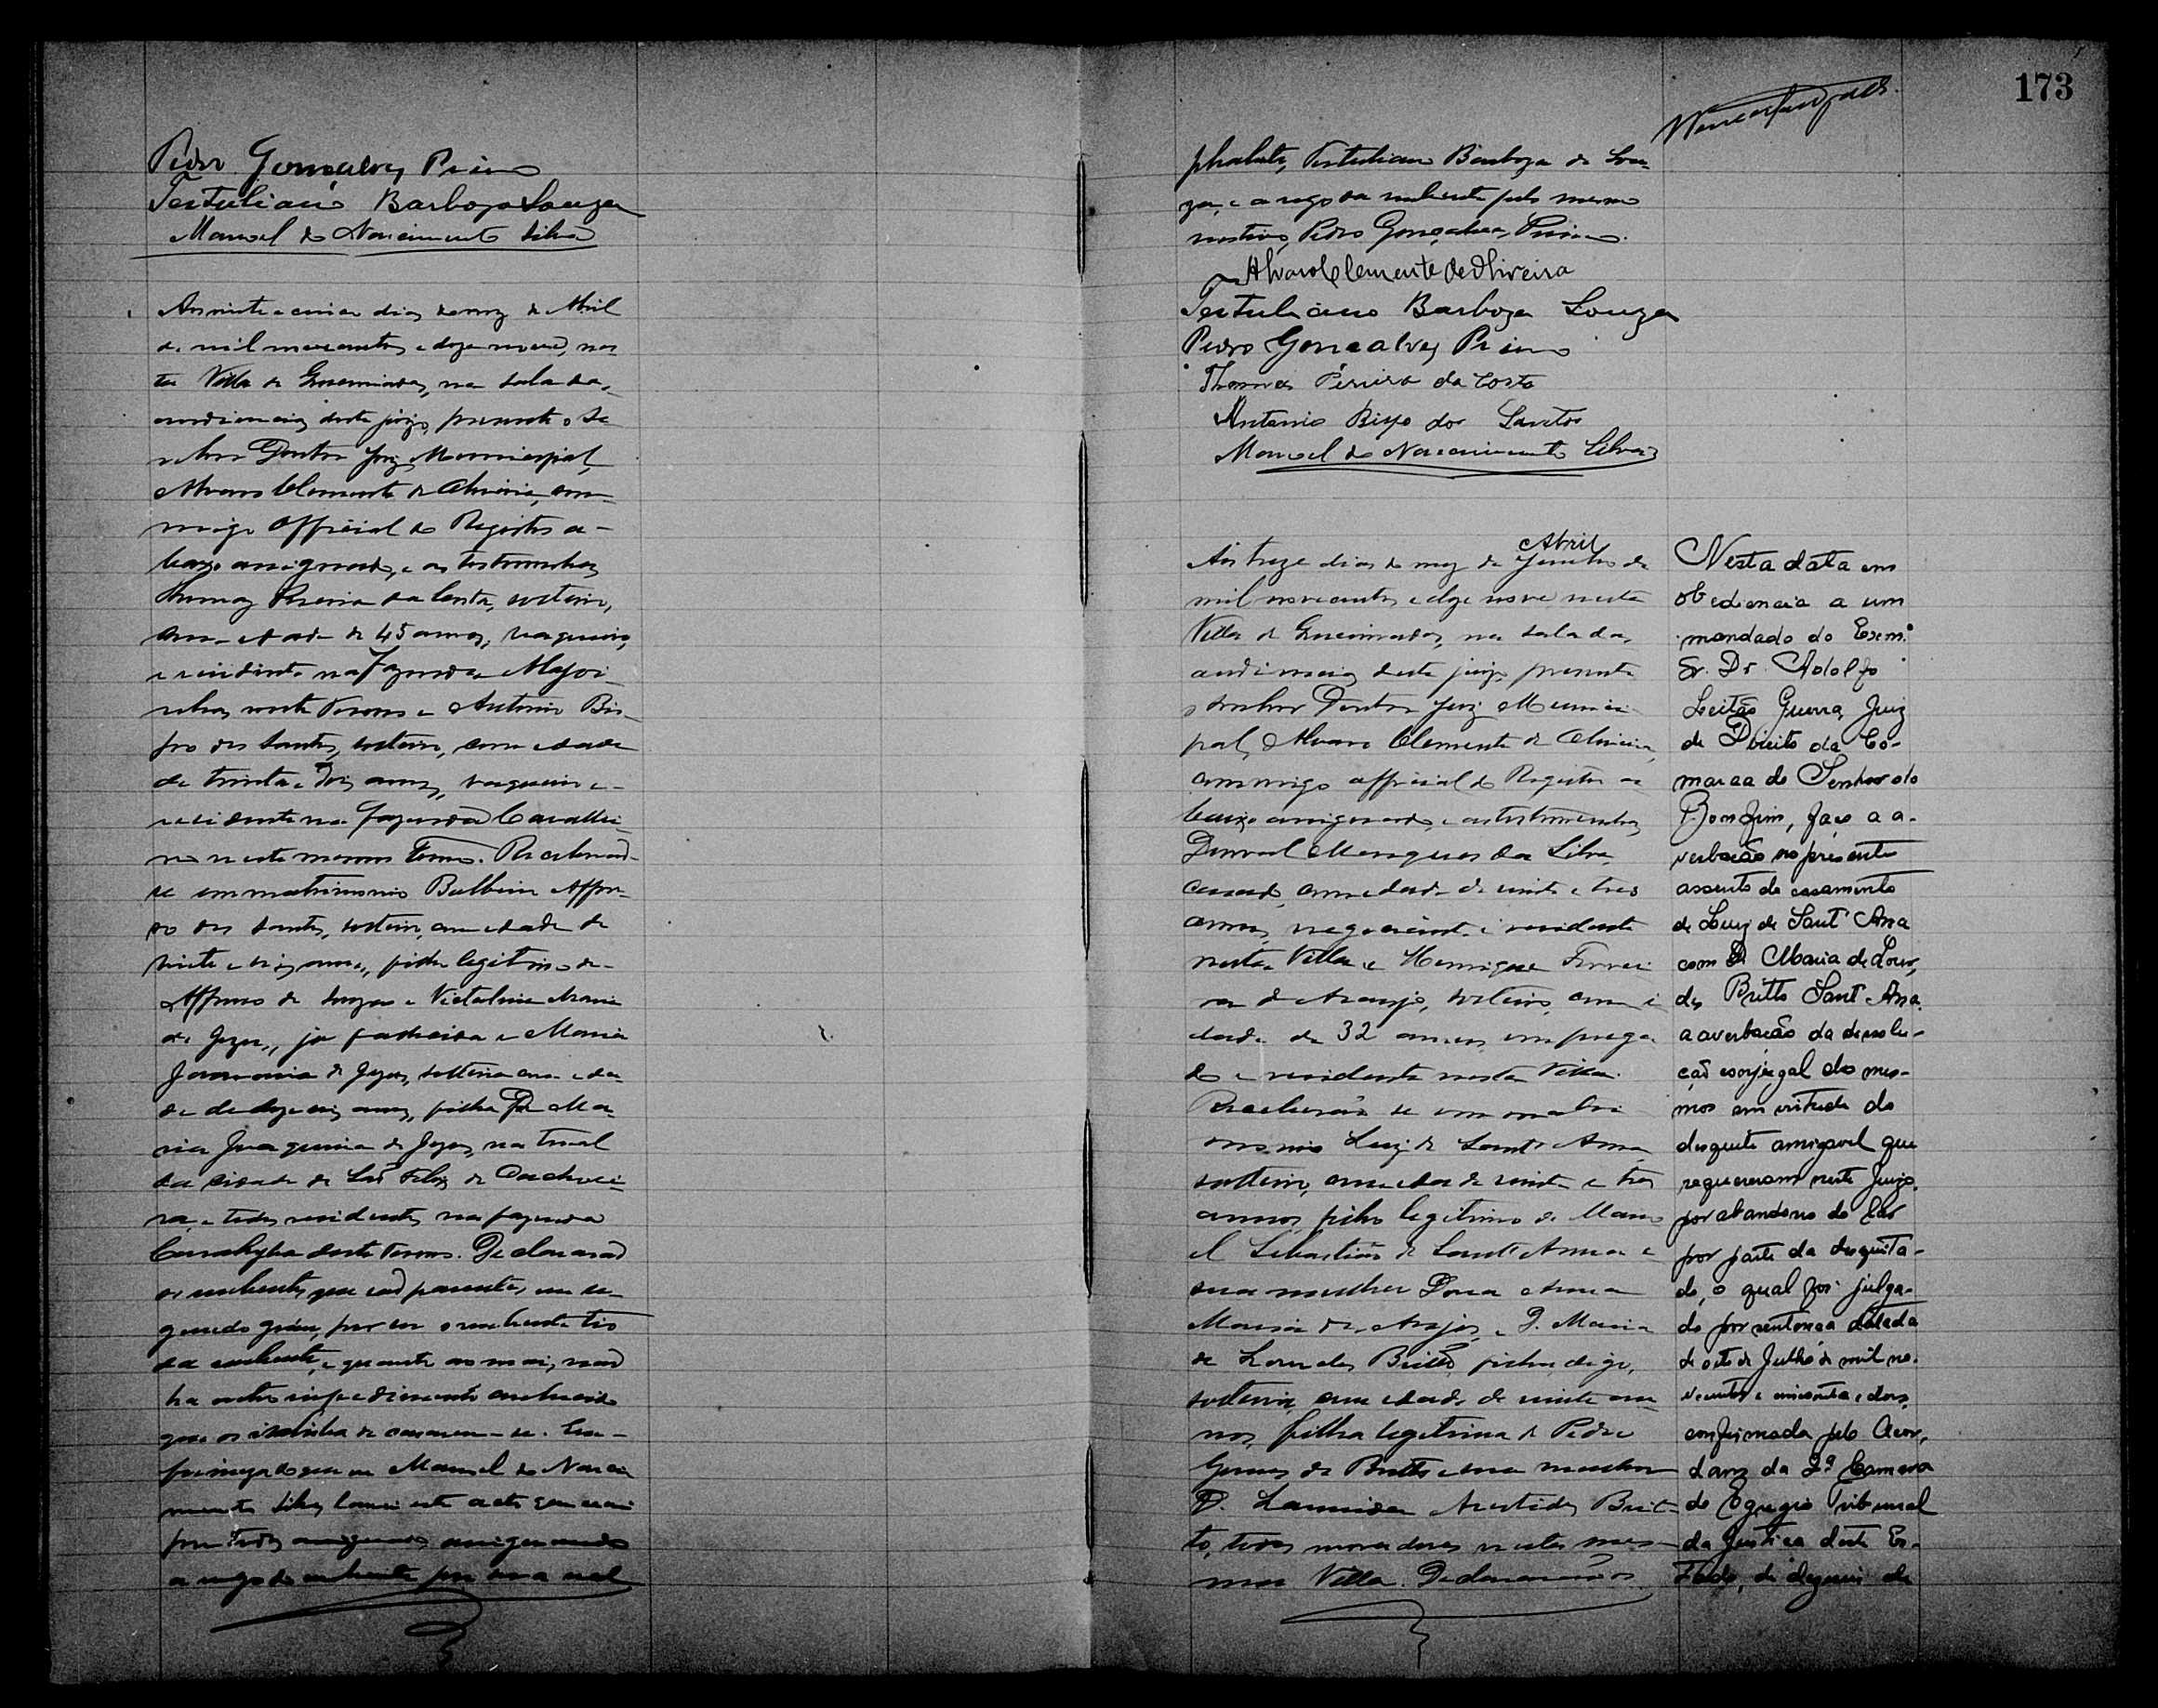 Pedro Gonçalves Primo
Tertuliano Barboza Souza
Manoel do Nascimento Silva
Aos vinte e cinco dias do mez de Abril
de mil novecentos e deze nove, nes
ta Villa de Queimadas, na sala das
audiencias deste juizo, presente o Se
nhor Doutor Juiz Municipal
Alvaro Clemente de Oliveira, com
migo Official do Registro a-
baixo assignado, e as testemunhas
Thomaz Pereira da Costa, solteiro,
com edade de 45 annos, vaqueiro,
e residente na Fazenda
neste Termo e Antonio Bis
po dos Santos, solteiro, com edade
de trinta e dois annos, vaqueiro e
residente na fazenda Cavallei
ro neste mesmo Termo. Receberão
se em matrimonio Balbino Affon
so dos Santos, solteiro, com edade de
vinte e seis annos, filho legitimo de
Affonso de Souza e Victalina Maria
de Jezus, ja fallecida e Maria
de Jezus, solteira com eda
de de deze seis annos, filha de Ma
ria Joaquina de Jezus, natural
da cidade de São Felix de Cachoei
ra, e todos residentes na fazenda
deste Termo. Declararão
os nubentes que são parentes em se
gundo gráu, por ser o nubente tio
da nubente, e quanto ao mais, não
ha outro impedimento conhecido
que os inhiba de casarem-se. Em
firmeza do que eu Manoel do Nasci
mento Silva lavrei este acto que vai
por todos assignado, assignando
a rogo do nubente por não sal
173
phabeto, Tertuliano Barboza de Sou
za, e a rogo da nubente pelo mesmo
motivo, Pedro Gonçalves Primo.
Alvaro Clemente de Oliveira
Tertuliano Barboza Souza
Pedro Gonçalves Primo
Thomaz Pereira da Costa
Antonio Bispo dos Santos
Manoel do Nascimento Silva
Abril
Aos treze dias do mez de Junho de
mil novecentos e deze nove nesta
Villa de Queimadas, na sala das
audiencias deste juizo presente
o Senhor Doutor Juiz Munici
pal, Alvaro Clemente de Oliveira,
commigo official do Registro a
baixo assignado, e as testemunhas
Durval Marques da Silva
casado, com edade de vinte e tres
annos, negociante e residente
nesta Villa e Henrique Ferrei
ra de Araujo, solteiro, com i
dade de 32 annos, emprega
do e residente nesta Villa.
Receberão se em matri
monio Luiz de Sant'Anna
solteiro, com edade de vinte e tres
annos, filho legitimo de Mano
el Sebastião de Sant'Anna e
sua mulher Dona Anna
Maria de Araujo, e D. Maria
de Lourdes Britto, filha digo,
solteira, com edade de vinte an
nos, filha legitima de Pedro
Gomes de Britto e sua mulher
D. Arestides Brit
to, todos moradores nesta mes
ma Villa. Declararão os
Nesta data em
obediencia a um
mandado do Exmº
Sr. Dr Adolfo
Leitão Guerra, Juiz
de Direito da Co-
marca do Senhor do
Bonfim, faço a a-
verbação no presente
assento de casamento
de Luiz de Sant'Ana
com D. Maria de Lour,
des Britto Sant'Ana,
a averbação da dissolu-
ção conjugal dos mes-
mos em virtude do
desquite amigavel que
requereram neste Juizo,
por abandono do lar
por parte da desquita-
da, o qual foi julga-
do por sentença datada
de oito de Julho de mil no-
vecentos e cincoenta e dois,
confirmada pelo Acor,
dam da 2ª Camara
do Egregio Tribunal
da Justiça deste Es-
tado, de dezeseis de